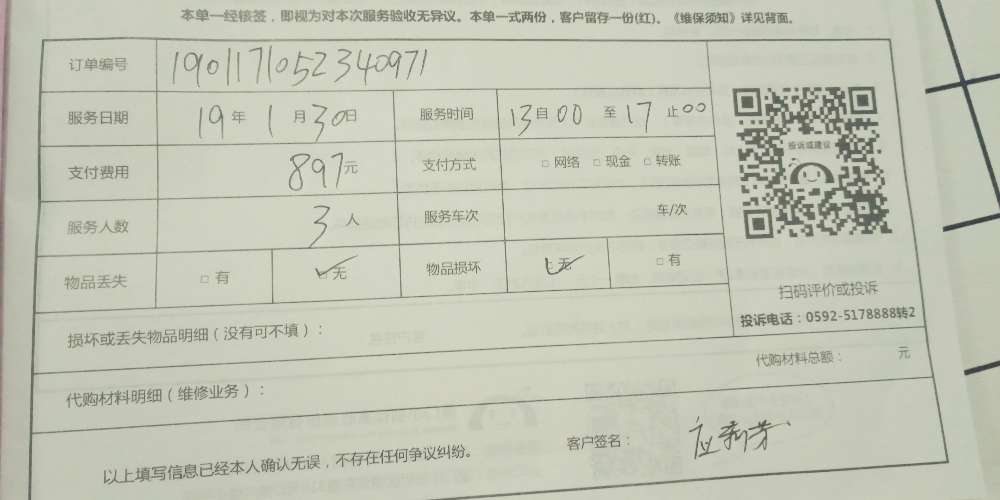 本单一经核签，即视为对本次服务验收无异议。本单一式两份，客户留存一份(红)。《维保须知》详见背面。
订单编号 1901171052340971
服务日期 19年1月30日 服务时间 13自00至17止00
支付费用 897元 支付方式 □网络 □现金 □转账
服务人数 3人 服务车次 车/次
物品丢失 □有 ☑无 物品损坏 ☑无 □有
投诉或建议
扫码评价或投诉
投诉电话：0592-5178888转2
损坏或丢失物品明细（没有可不填）：
代购材料明细（维修业务）： 代购材料总额： 元
以上填写信息已经本人确认无误，不存在任何争议纠纷。 客户签名： 应新芳